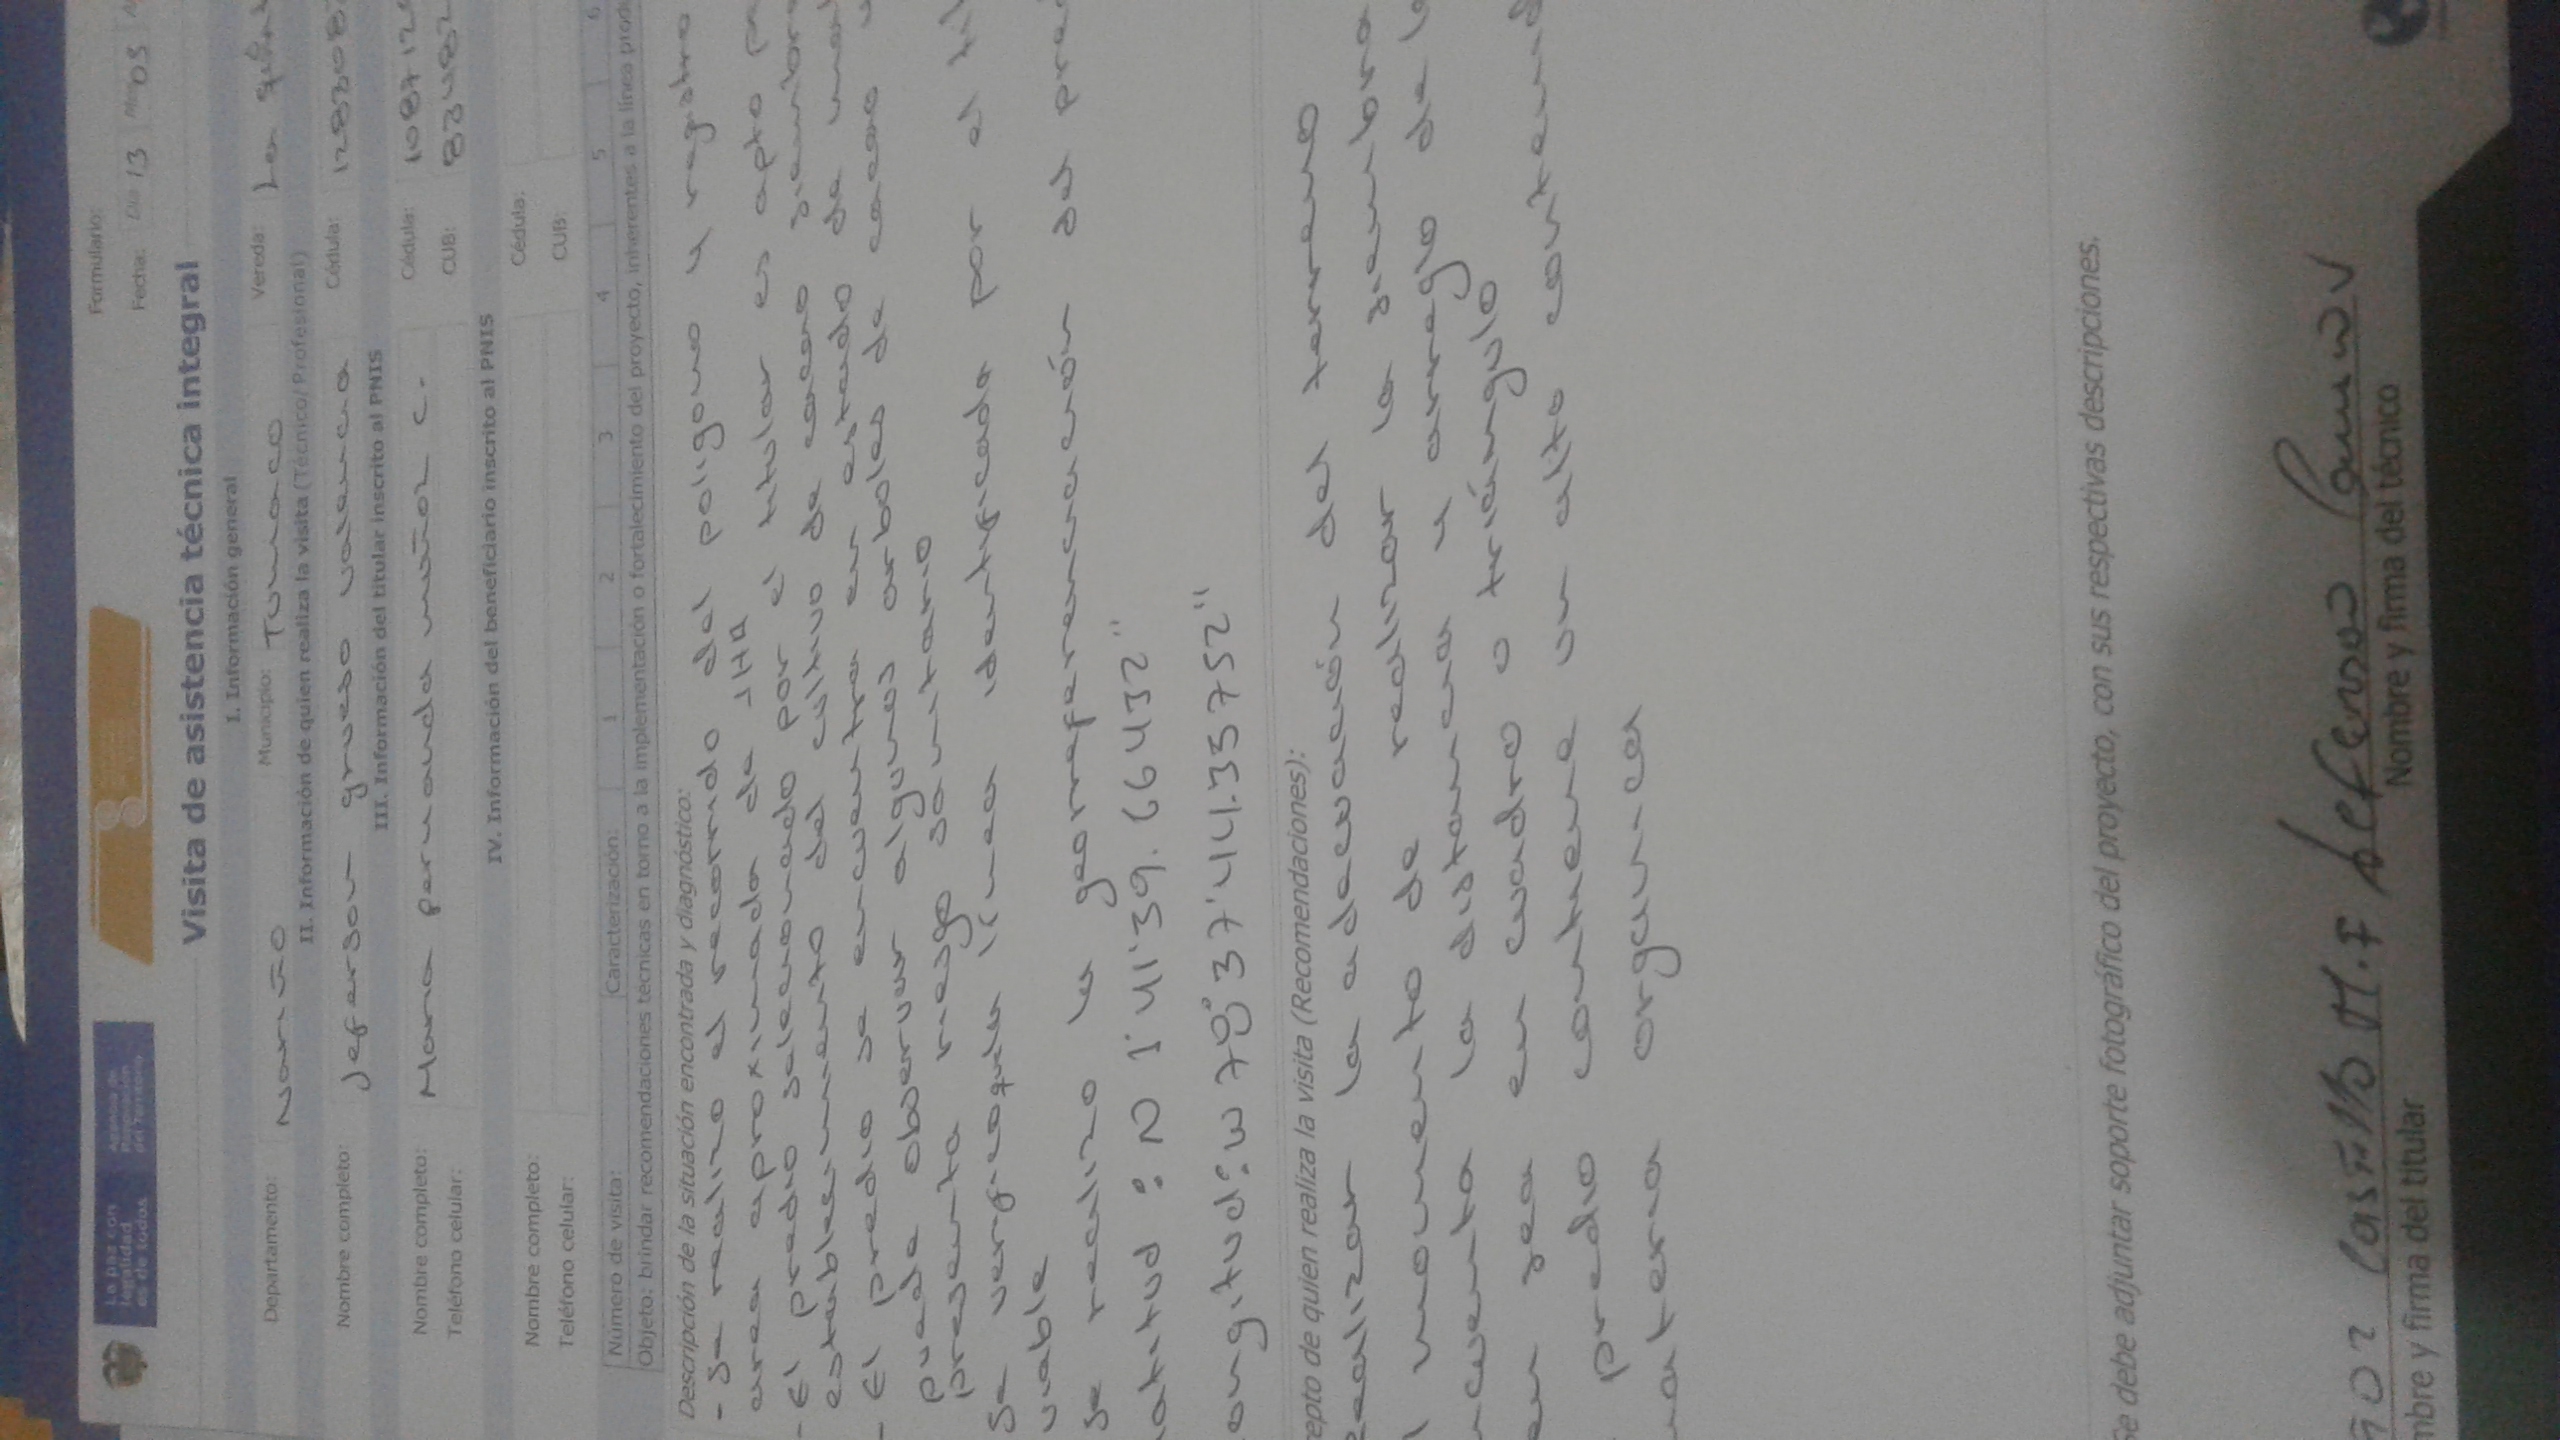 La paz con legalidad es de todos
Agencia de Renovación del Territorio
Formulario:
Fecha: Día 13 Mes 05
Visita de asistencia técnica integral
I. Información general
Departamento: Nariño Municipio: Tumaco Vereda: Las
II. Información de quien realiza la visita (Técnico/Profesional)
Nombre completo: Jeferson grueso valencia Cédula: 128308
III. Información del titular inscrito al PNIS
Nombre completo: Maria Fernanda muñoz C. Cédula: 108712
Teléfono celular: CUB: 83482
IV. Información del beneficiario inscrito al PNIS
Nombre completo: Cédula:
Teléfono celular: CUB:
Número de visita: Caracterización: 1 2 3 4 5 6
Objeto: brindar recomendaciones técnicas en torno a la implementación o fortalecimiento del proyecto, inherentes a la línea produ
Descripción de la situación encontrada y diagnóstico:
- Se realizo el recorrido del poligono y registro
area aproximada de 1HA
- El predio seleccionado por el titular es apto
establesimiento del cultivo de cacao
- El predio se encuentra en estado de
puede observar algunos arboles de cacao
presenta riesgo sanitario
Se verifico que la linea identificada por el
viable
Se realizo la georreferenciación del
atitud: N 1°41'39.66432"
ongitud: W 78°37'44.33752"
cepto de quien realiza la visita (Recomendaciones):
Realizar la adecuación del terreno
l momento de realizar la siembra
ncuenta la distancia y arreglo de
en sea en cuadro o triángulo
predio contiene un alto contenid
materia organica
Se debe adjuntar soporte fotográfico del proyecto, con sus respectivas descripciones.
ñoz Castillo M.F Jefferson
mbre y firma del titular Nombre y firma del técnico